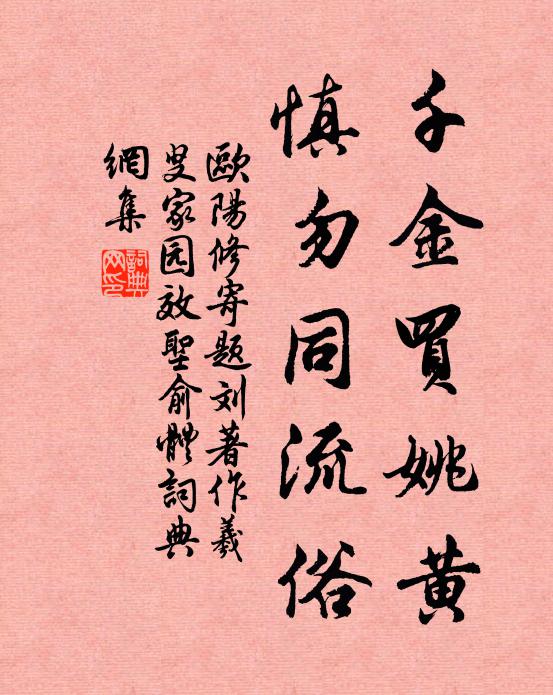 千金買姚黄
慎勿同流俗
歐陽修寄題刘著作羲
叟家园效聖俞體詞典
網集
詞典網印